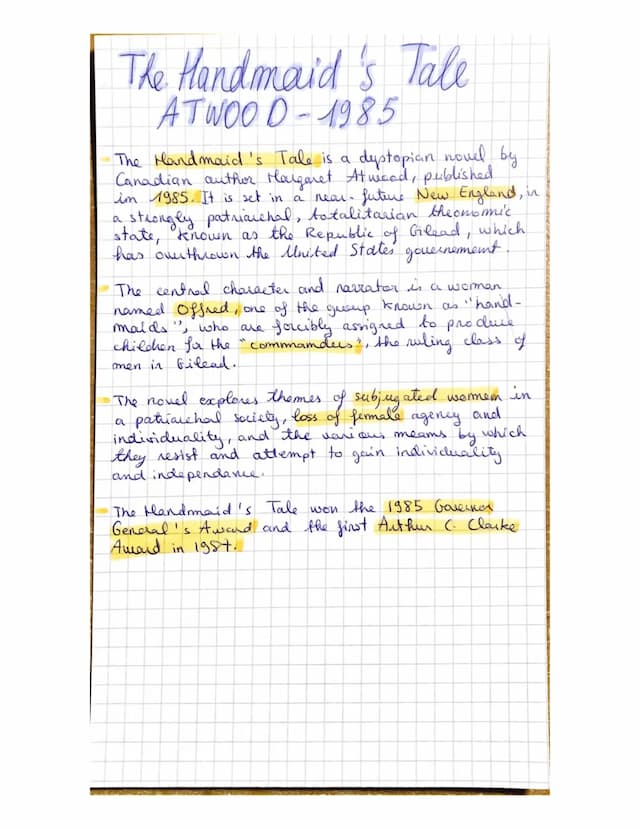 The Handmaid's Tale
ATWOOD - 1985
The Handmaid's Tale is a dystopian novel by
Canadian author Margaret Atwood, published
in 1985. It is set in a near-future New England, in
a strongly patriarchal, totalitarian theonomic
state, known as the Republic of Gilead, which
has overthrown the United States governement.
The central character and narrator is a woman
named Offred, one of the group known as "hand-
maids", who are forcibly assigned to produce
children for the "commamders", the ruling class of
men in Gilead.
The novel explores themes of subjugated women in
a patriarchal society, loss of female agency and
individuality, and the various means by which
they resist and attempt to gain individuality
and independance.
The Handmaid's Tale won the 1985 Governor
General's Award and the first Arthur C. Clarke
Award in 1987.